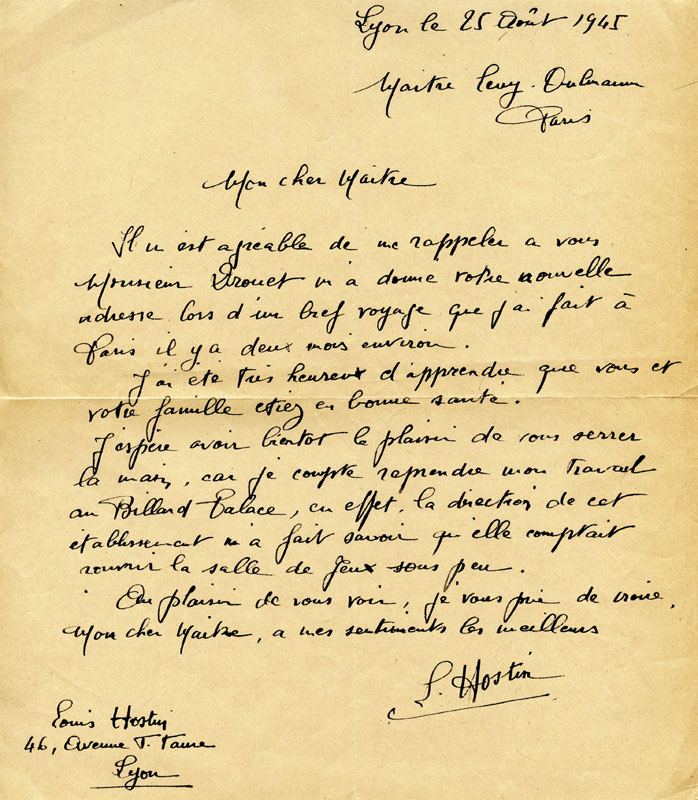 Lyon le 25 Août 1945
Maitre Levy-Oulmann
Paris
Mon cher Maitre
Il m est agréable de me rappeler a vous
Monsieur Drouet m a donne votre nouvelle
adresse lors d'un bref voyage que j ai fait à
Paris il y a deux mois environ.
J ai été très heureux d'apprendre que vous et
votre famille etiez en bonne santé.
J'espère avoir bientot le plaisir de vous serrer
la main, car je compte reprendre mon travail
au Billard Palace, en effet, la direction de cet
établissement m a fait savoir qu'elle comptait
rouvrir la salle de Jeux sous peu.
Au plaisir de vous voir, je vous prie de croire,
Mon cher Maitre, a mes sentiments les meilleurs
L. Hostin
Louis Hostin
46, Avenue T.
Lyon